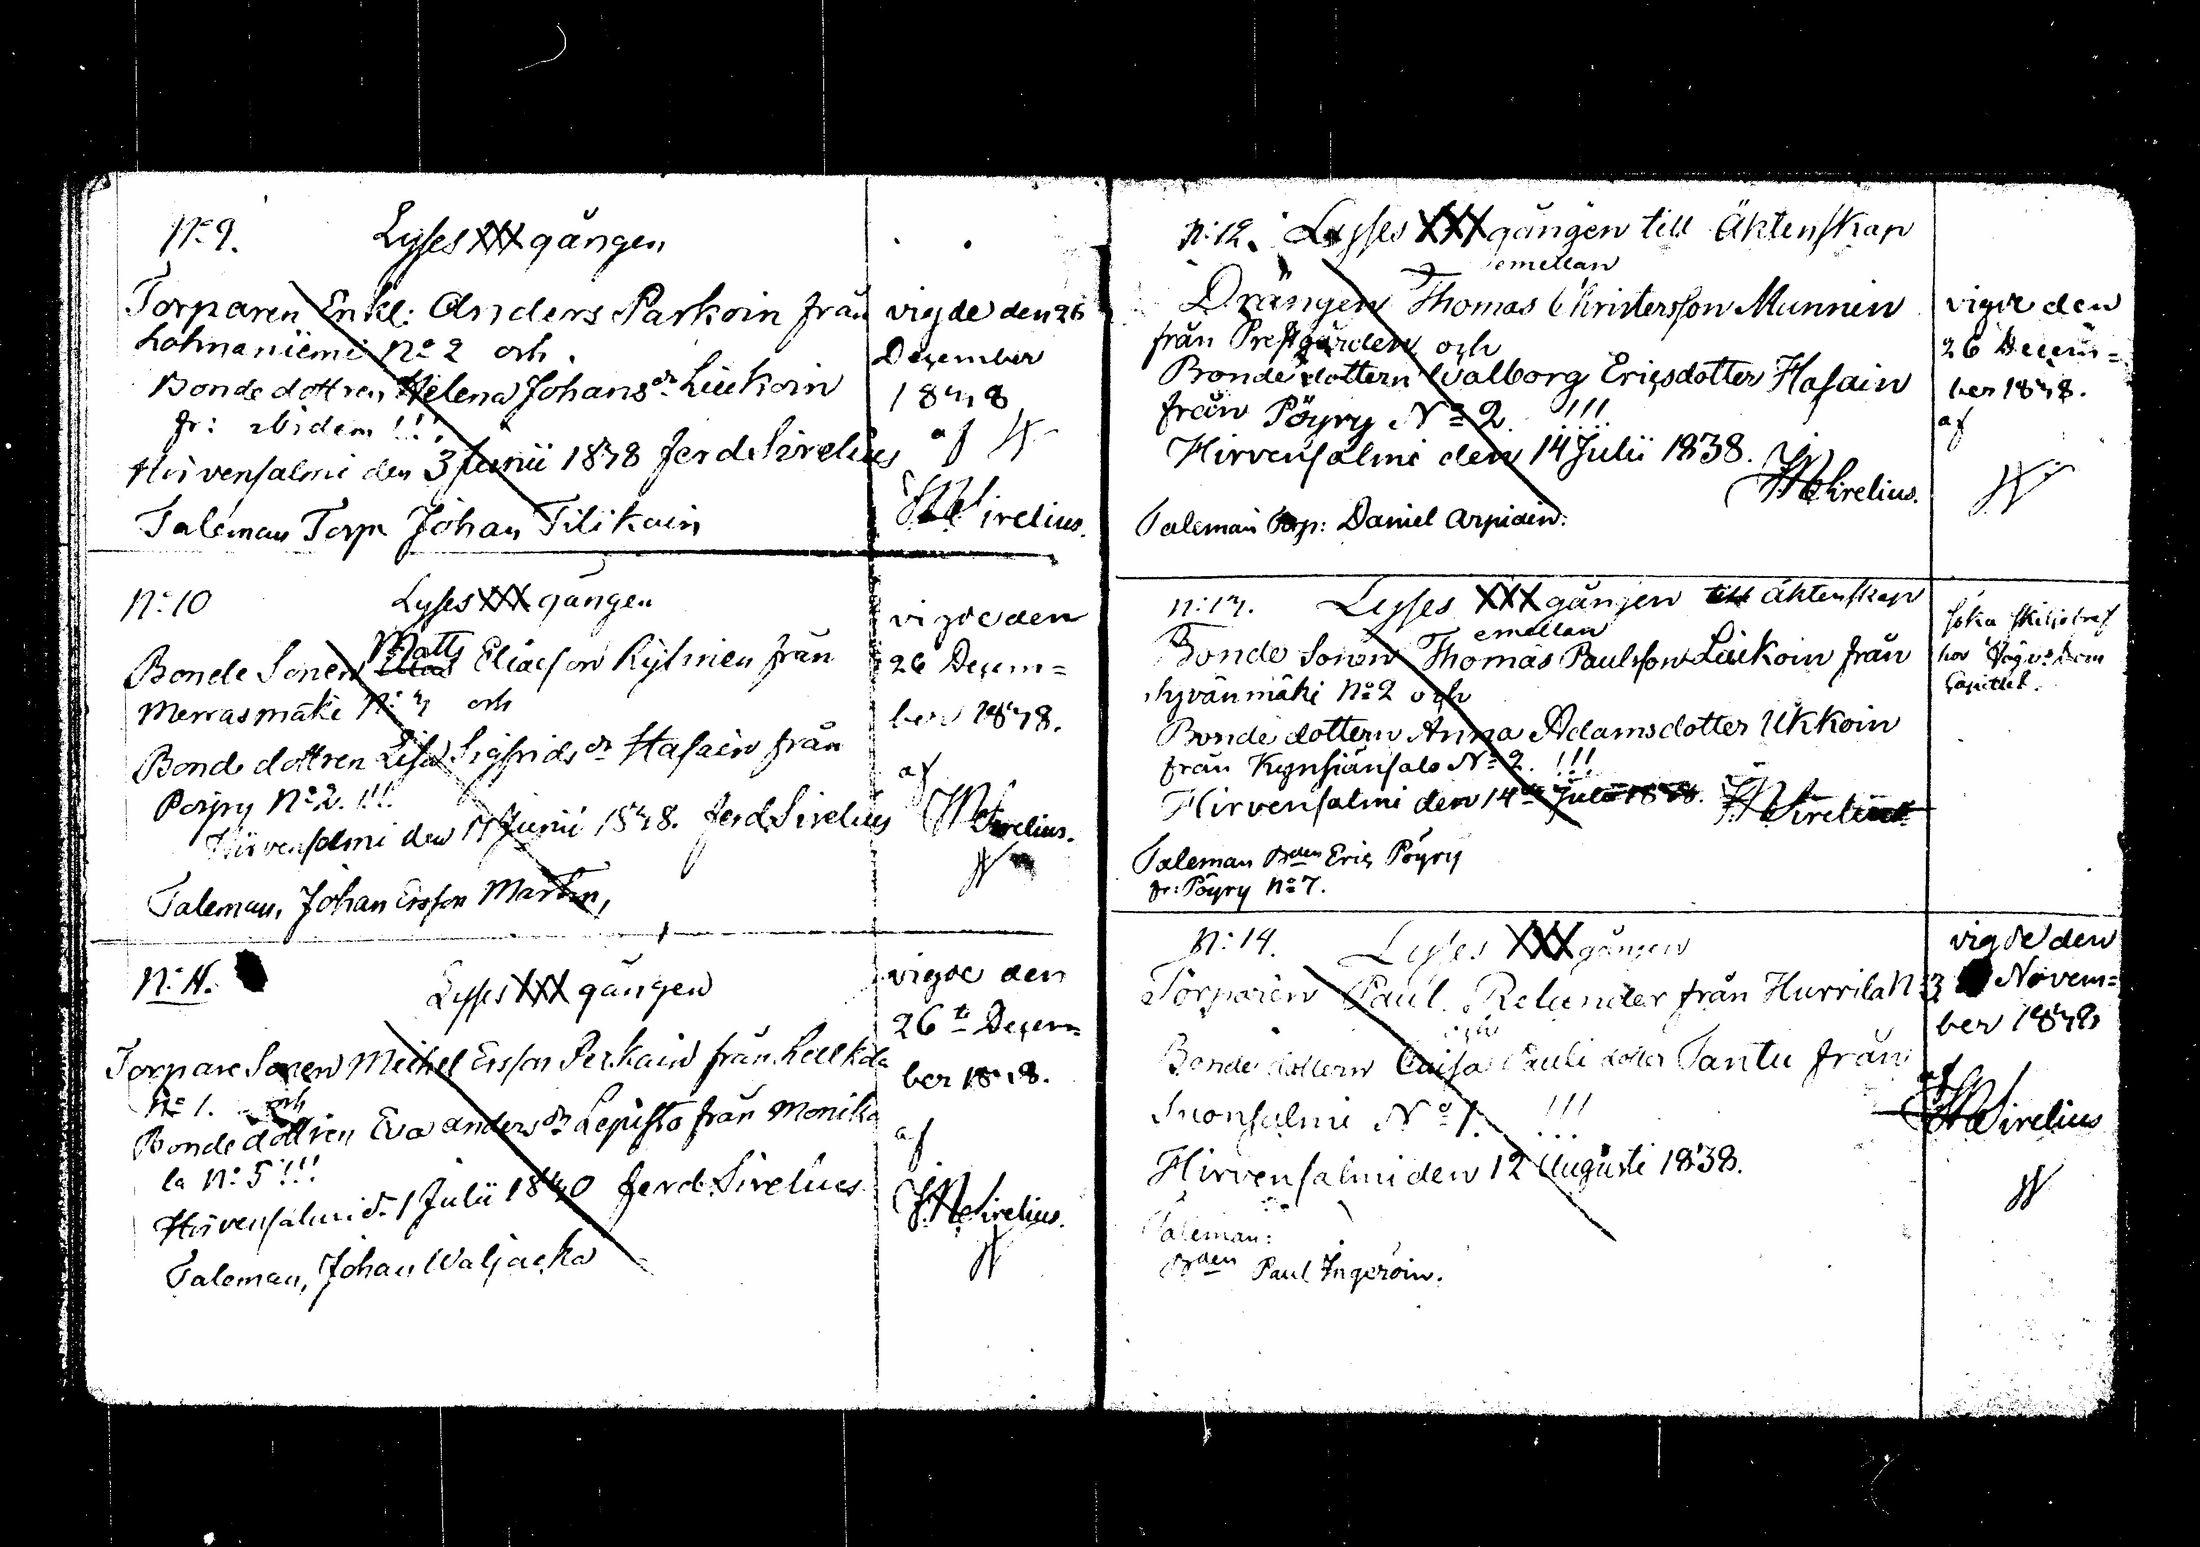 N:o 9. Lyses XXX gången
Torparen Enkl: Anders Parkoin från
Lohnaniemi No 2 och
Bonde dottren Helena Johansdr Liukoin
fr: ibidem !!!
Hirvensalmi den 3 Junii 1838 Ferd Sirelius
Taleman Torp Johan Tilikain
vigde den 26
December
1838
af
Sirelius.
N:o 10 Lyses XXX gången
Matts
Bonde Sonen Eliasson Kylmien från
Merrasmäki N:o 3 och
Bonde dottren Lisa Sigfridsdr Hasain från
Pöyry No 2. !!!
Hirvensalmi den Junii 1838. Ferd Sirelius
Taleman, Johan Ersson
vigde den
26 Decem=
ber 1838.
af
Sirelius.
N:o 11. Lyses XXX gången
Torpare Sonen Michel Ersson Perkain från
No 1. och
Bonde dottren Eva Andersdr Lepistö från Monika
la No 5 !!!
Hirvensalmi d. 1 Julii Ferd. Sirelius
Taleman, Johan Waljacka
vigde den
26te Decem=
ber 1838.
af
Sirelius.
N:o 12. Lysses XXX gången till Äktenskap
emellan
Drängen Thomas Christersson Munnin
från Prestgården och
Bonde dottern Walborg Ericsdotter Hasain
från Pöyry No 2. !!!
Hirvensalmi den 14 Julii 1838.
Sirelius.
Taleman Torp: Daniel Arpiain.
vigde den
26 Decem=
ber 1838.
af
N:o 13. Lysses XXX gången till äktenskap
emellan
Bonde Sonen Thomas Paulsson Liukoin från
Hyvänmäki No 2 och
Bonde dottern Anna Adamsdotter Ukkoin
från Kynsiänsalo No 2. !!!
Hirvensalmi den 14de Julii 1838. Sirelius
Taleman Bden Eric Pöyry
fr: Pöyry No 7.
söka skiljobref
hos Dom
Capitlet.
N:o 14. Lyses XXX gången
Torparen Paul Relander från Hurrila N:o 3
och
Bonde dottern Caisa Pauli dotter Tantu från
Suonsalmi No 1. !!!
Hirvensalmi den 12 Augusti 1838.
Taleman:
Bden Paul Ingeroin.
vigde den
Novem=
ber 1838
af
Sirelius